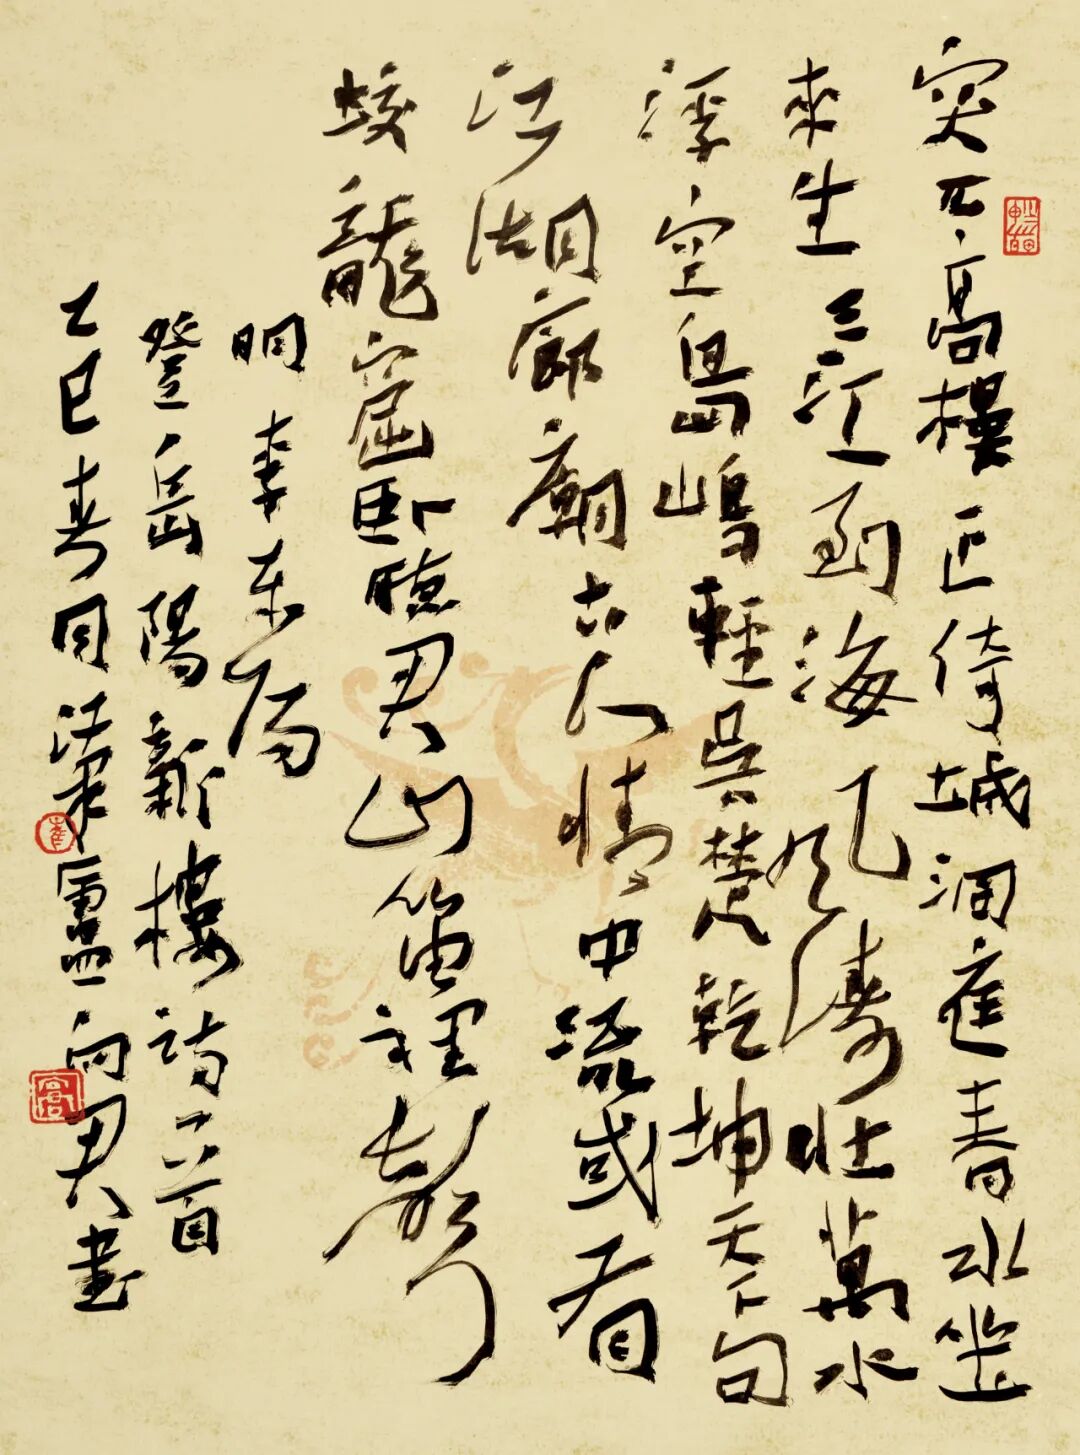 突兀高樓正倚城洞庭春水坐
來生三江到海風濤壯萬水
浮空島嶼輕吳楚乾坤天下句
江湖廊廟古人情中流或有
蛟龍窟臥聽君山笛裡聲
明李東陽
登岳陽新樓詩一首
乙巳春月廬向君書